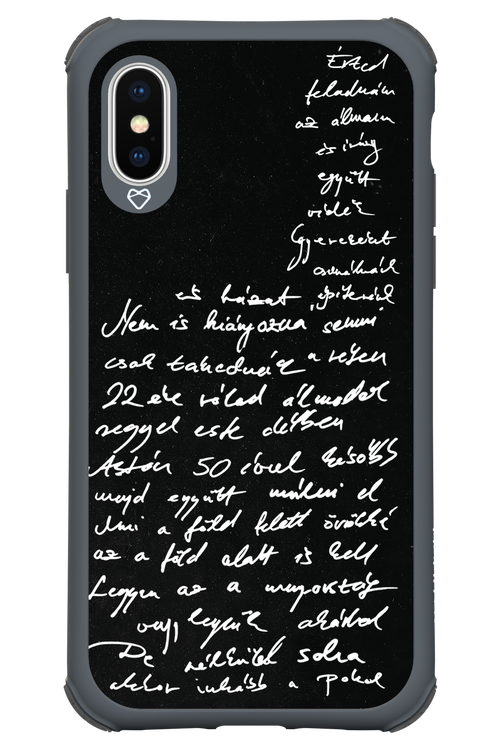 Érted
feladnám
az álmam
és irány
együtt
vidék
Gyereket
csinálnánk
és házat építenénk
Nem is hiányozna semmi
csak takednék a réten
22 éve rólad álmodok
reggel este délben
Aztán 50 évvel később
majd együtt múlni el
Ami a föld felett örökké
az a föld alatt is kell
Legyen az a mennyország
vagy legyünk akárhol
De nélküled soha
akkor inkább a pokol